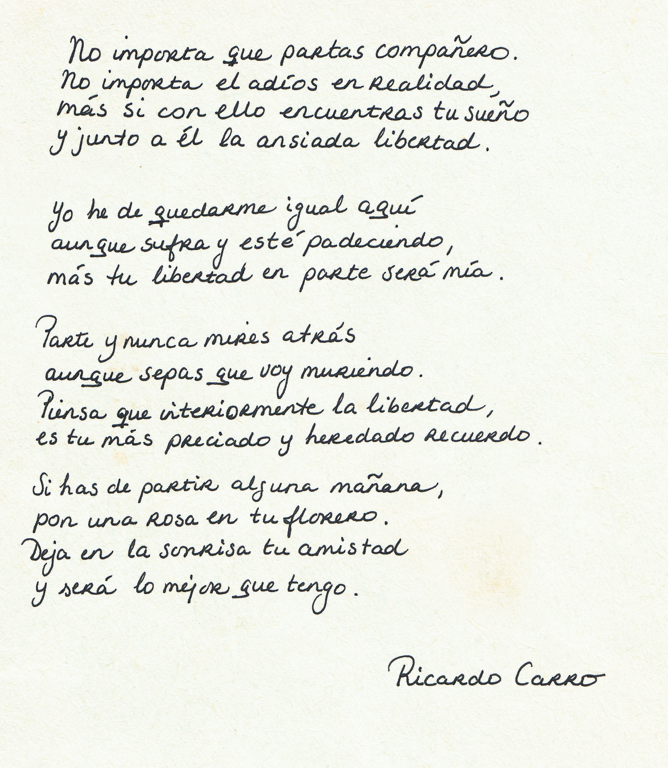 No importa que partas compañero.
No importa el adíos en realidad,
más si con ello encuentras tu sueño
y junto a él la ansiada libertad.
Yo he de quedarme igual aquí
aunque sufra y esté padeciendo,
más tu libertad en parte será mía.
Parte y nunca mires atrás
aunque sepas que voy muriendo.
Piensa que interiormente la libertad,
es tu más preciado y heredado recuerdo.
Si has de partir alguna mañana,
pon una rosa en tu florero.
Deja en la sonrisa tu amistad
y será lo mejor que tengo.
Ricardo Carro